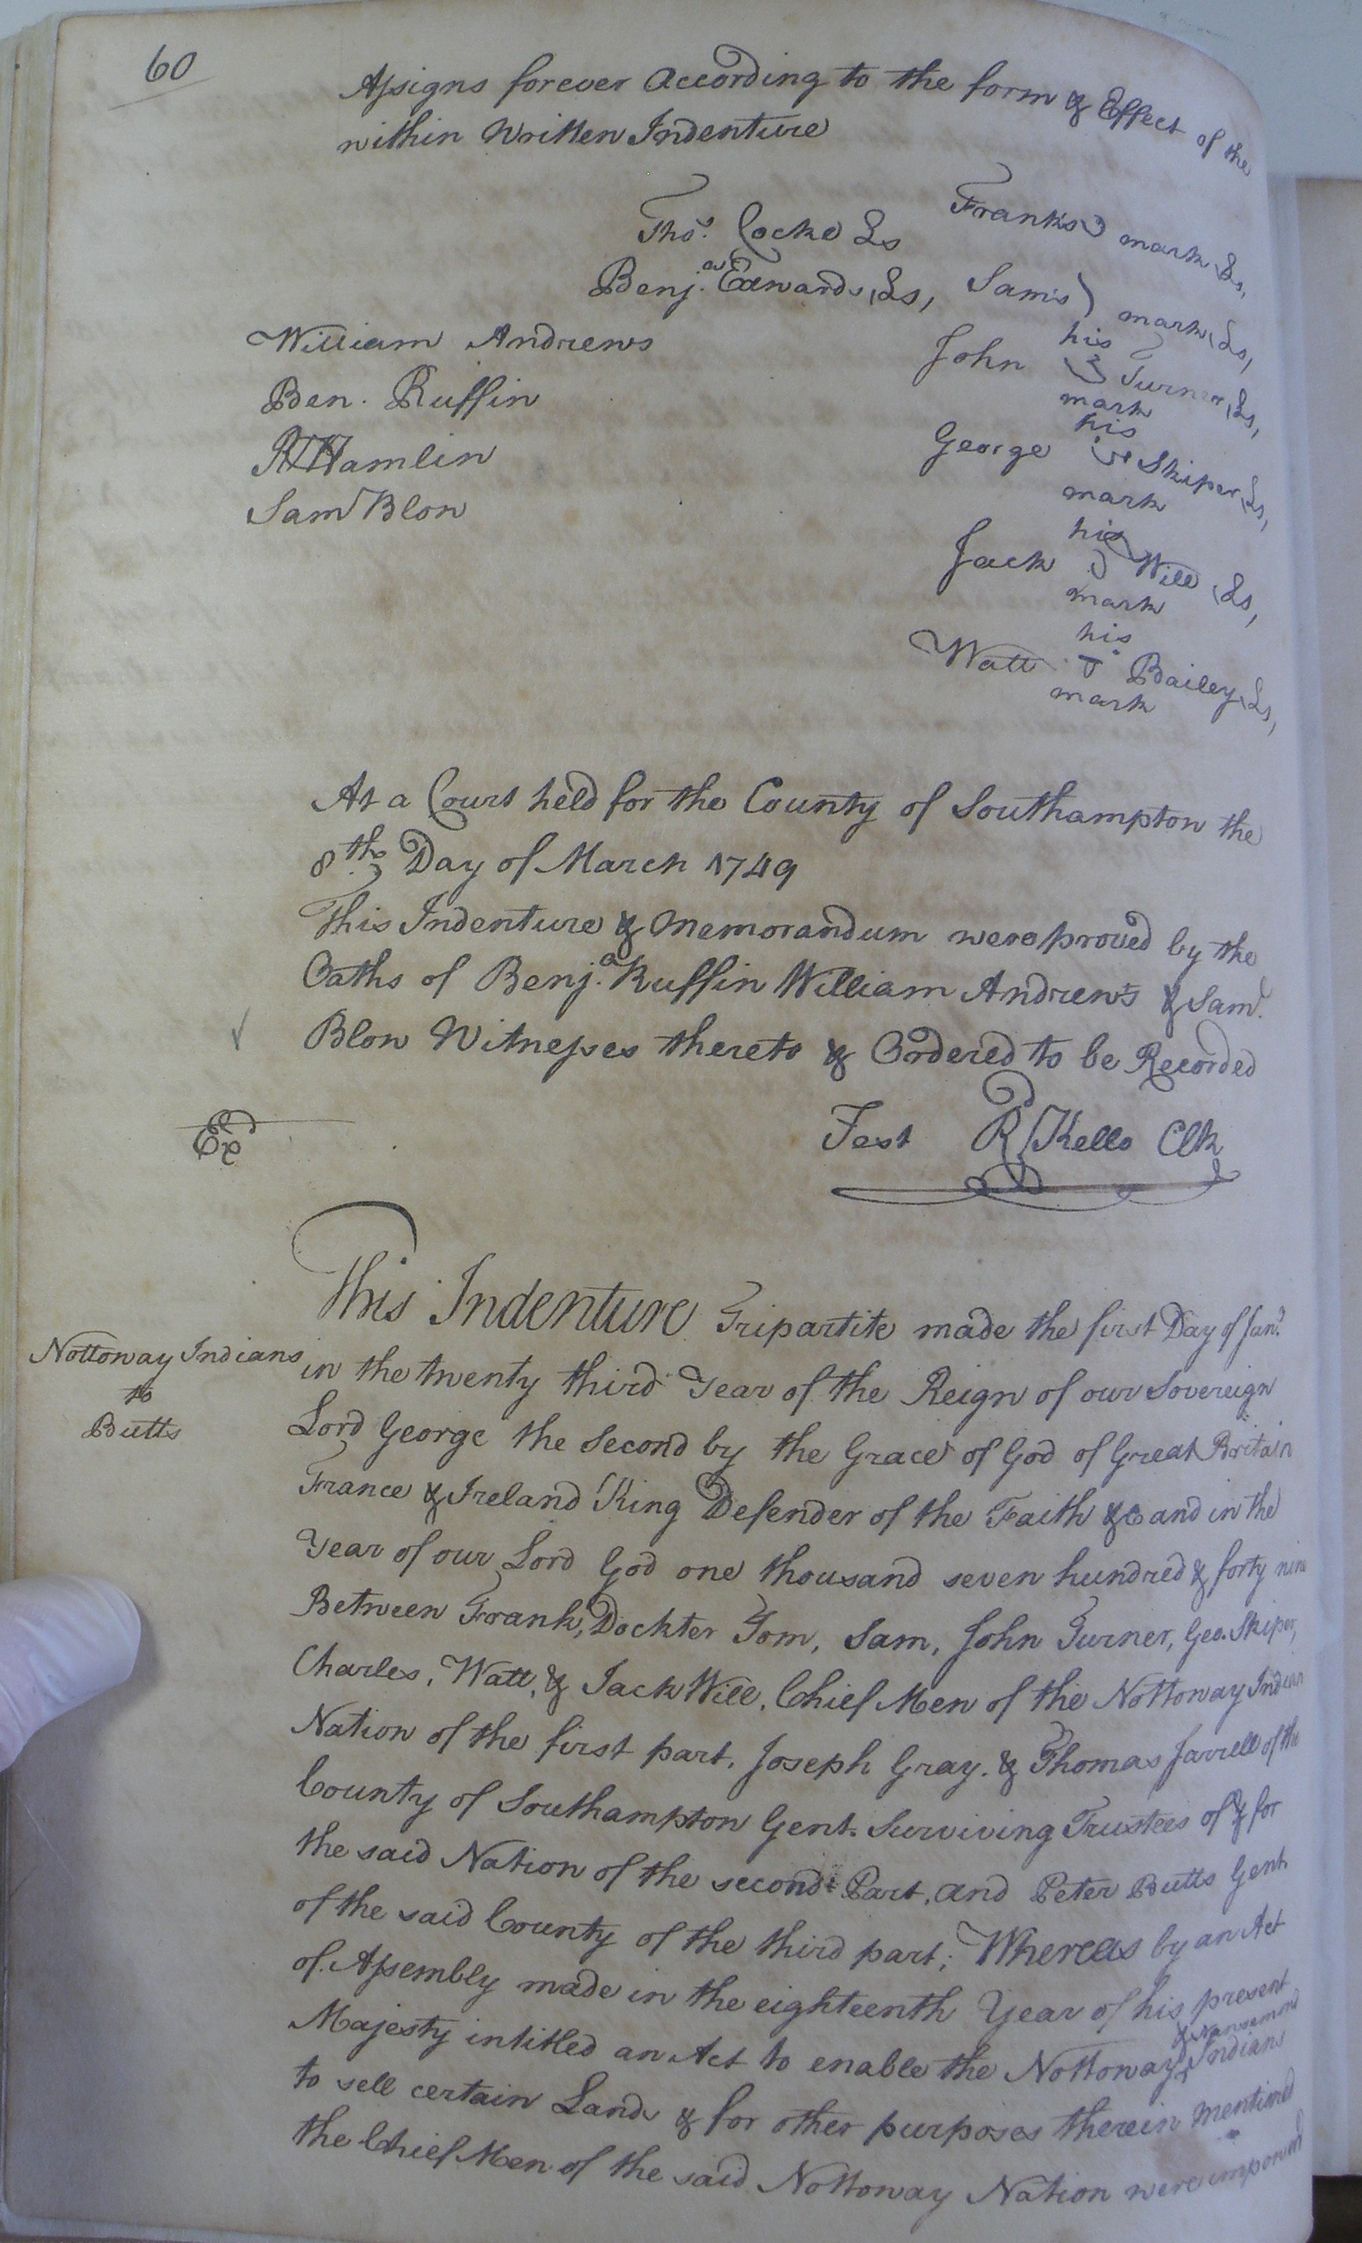 60
Assigns forever according to the form & Effect of the
within Written Indenture
Franks mark Ls,
Thos. Cocke Ls
Benja. Edwards, Ls, Sam's mark, Ls,
William Andrews
his
John Turner, Ls,
mark
Ben. Ruffin
his
George Skiper, Ls,
mark
R Hamlin
Saml Blow
his
Jack Will, Ls,
mark
his
Watt Bailey, Ls,
mark
At a Court held for the County of Southampton the
8th Day of March 1749
This Indenture & Memorandum were proved by the
Oaths of Benja. Ruffin William Andrews & Saml.
Blow Witnesses thereto & Ordered to be Recorded
Exd
Test R Kello Clk
This Indenture Tripartite made the first Day of Jany.
Nottoway Indians
to
Butts
in the twenty third Year of the Reign of our Sovereign
Lord George the Second by the Grace of God of Great Britain
France & Ireland King Defender of the Faith &c and in the
Year of our Lord God one thousand seven hundred & forty nine
Between Frank, Dockter Tom, Sam, John Turner, Geo. Skiper,
Charles, Watt, & Jack Will, Chief Men of the Nottoway Indian
Nation of the first part. Joseph Gray. & Thomas Jarrell of the
County of Southampton Gent. Surviving Trustees of & for
the said Nation of the second Part, and Peter Butts Gent.
of the said County of the third part; Whereas by an Act
of Assembly made in the eighteenth Year of his present
Majesty intitled an Act to enable the Nottoway & Nansemond Indians
to sell certain Lands & for other purposes therein mentioned
the Chief Men of the said Nottoway Nation were impowred